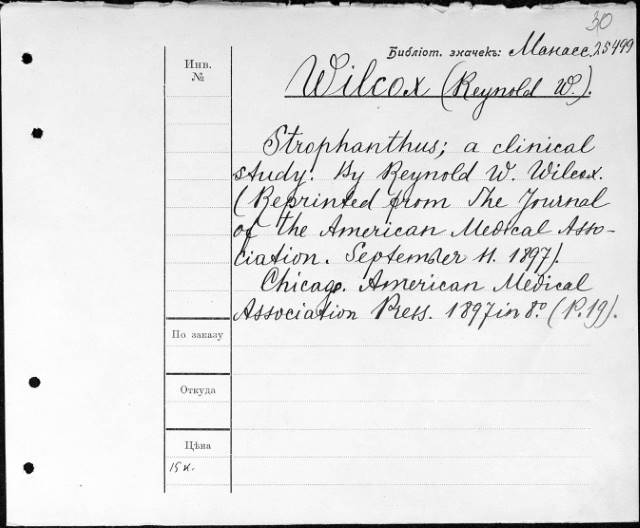 30
Библіот. значекъ: Манасс. 25499
Инв.
№
Wilcox (Reynold W.).
Strophanthus; a clinical
study. By Reynold W. Wilcox.
(Reprinted from The Journal
of the American Medical Asso-
ciation. September 11. 1897).
Chicago. American Medical
Association Press. 1897 in 8.° (P. 19).
По заказу
Откуда
Цѣна
15 к.